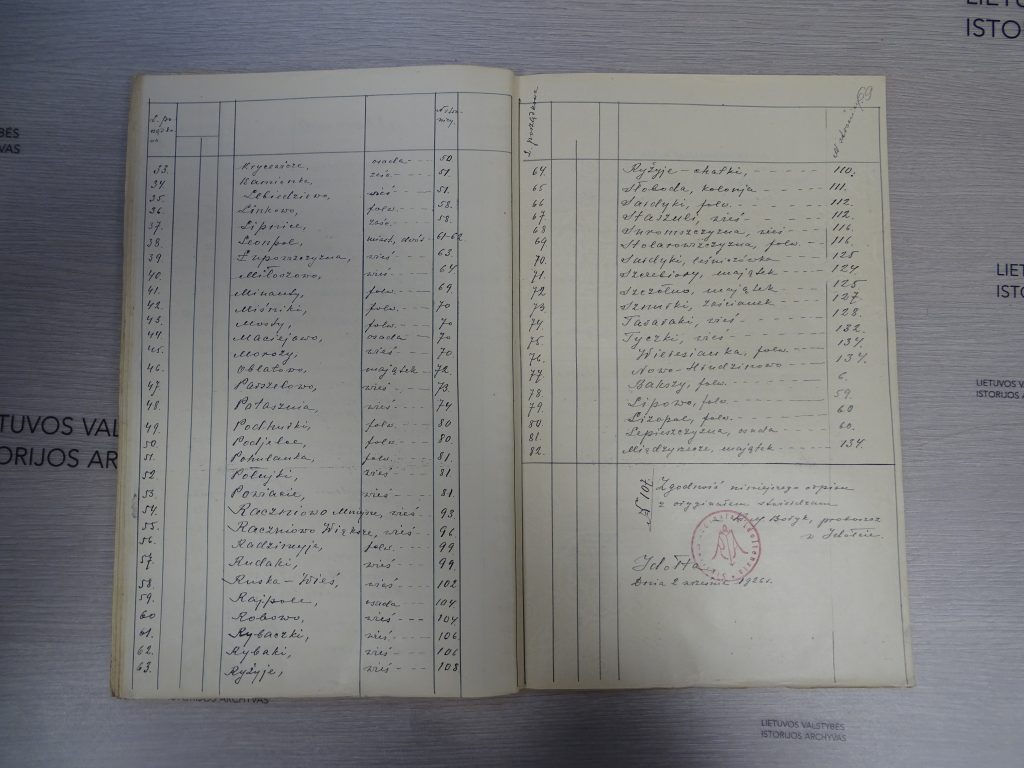 LIETUVOS VALSTYBĖS
ISTORIJOS ARCHYVAS
33. osada 50
34. Kamienka, 51.
35. Lebiedziewo, wieś 51.
36. Linkowo, folw. 58.
37. Lipnice, 58.
38. Leonpol, miast, dwór 61-62
39. Łuposzczyzna, wieś 63.
40. Miłoszowo, wieś 64
41. Minanty, folw. 69
42. Miśniki, folw. 70
43. Mosty, folw. 70
44. Maciejewo, osada 70
45. Morozy, wieś 70
46. Obłatowo, majątek 72.
47 Parszelowo, wieś 73.
48. Potasznia, wieś 74
49. Podhniki, folw. 80
50. Podjelce, folw. 80.
51. Pohulanka, folw. 81.
52 Półejki, wieś 81.
53. Powiacie, wieś 81.
54. Raczniowo Mniejsze, wieś 93.
55. Raczniowo Większe, wieś 96.
56. Radziwyje, folw. 99
57. Rudaki, wieś 99.
58. Ruska-Wieś, wieś 102
59. Rajpole, osada 104
60 Robowo, wieś 104
61. Rybaczki, wieś 106.
62. Rybaki, wieś 106
63. Ryżyje, wieś 108
69
L. porządkowa
64. Ryżyje-chatki, 110.
65 Słoboda, kolonja 111.
66 Saidyki, folw. 112.
67 Staszuli, wieś 112.
68 wieś 116.
69 Stolarowszczyzna, folw. 116.
70. Saidyki, leśniczówka 125
71. Szczebioty, majątek 124
72 Szczółno, majątek 125
73 Sznurki, zaścianek 127.
74 Tararaki, wieś 128.
75. Tyczki, wieś 132.
76. folw. 134.
77 Nowo-Hindzinowo 134.
78. Bakszy, folw. 6.
79. Lipowo, folw. 59.
80. Lizopol, folw. 60
81. Lepieszczyzna, osada 60.
82. Międzyrzecze, majątek 134.
№ 107 Zgodność niniejszego odpisu
z oryginałem stwierdzam
Bożyk, proboszcz
w Idołcie.
Idołta
Dnia 2 września 1926 r.
LIETUVOS VALSTYBĖS
ISTORIJOS ARCHYVAS